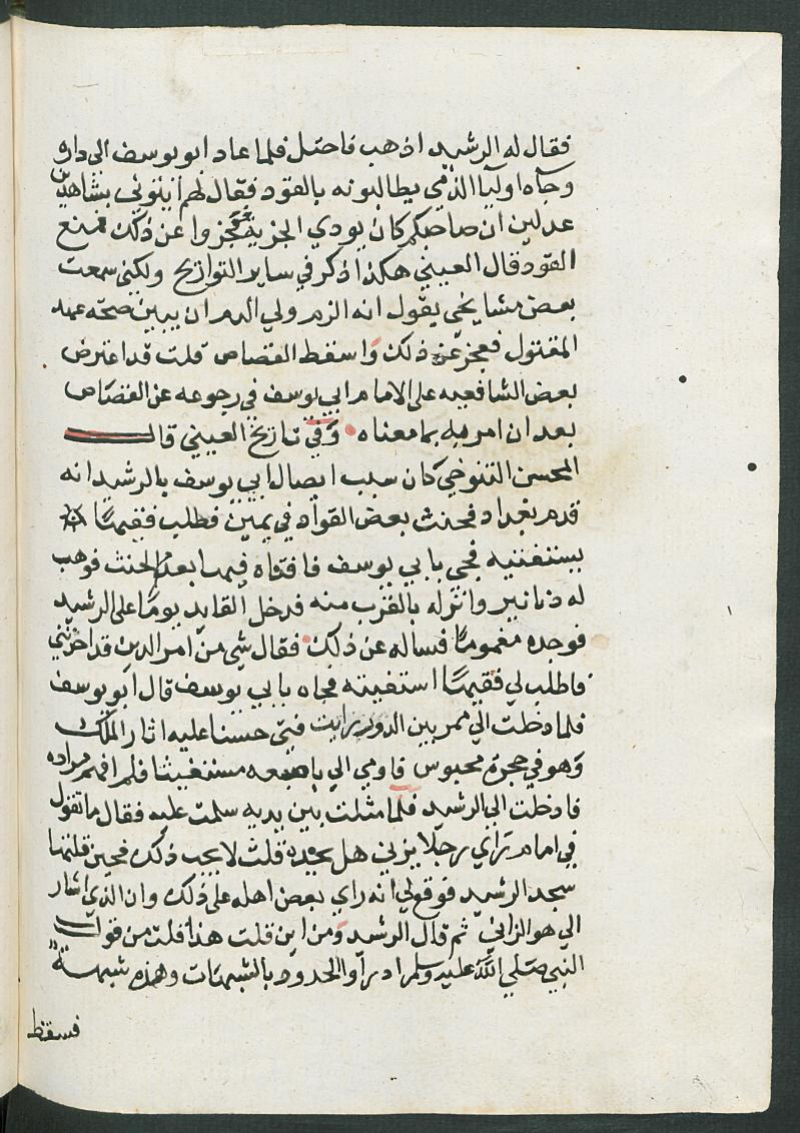 فقال له الرشيد اذهب فاحتل فلما عاد ابو يوسف الى داره
وجآه اوليآ الذمي يطالبونه بالقود فقال لهم ايتوني بشاهدين
عدلين ان صاحبكم كان يودي الجزية فعجزوا عن ذلك فمنع
القود قال العيني هكذا ذكر في ساير التواريخ ولكني سمعت
بعض مشايخي يقول انه الزم ولي الدم ان يبين صحة عهد
المقتول فعجز عن ذلك واسقط القصاص قلت قد اعترض
بعض الشافعيه على الامام ابي يوسف في رجوعه عن القصاص
بعد ان امر به بما معناه وفي تاريخ العيني قال
المحسن التنوخي كان سبب ايصال ابي يوسف بالرشيد انه
قدم بغداد فحنث بعض القواد في يمين فطلب فقيها
يستفتيه فجي بابي يوسف فافتاه فيها بعدم الحنث فوهب
له دنانير وانزله بالقرب منه فدخل القايد يوما على الرشيد
فوجده مغموما فساله عن ذلك فقال شي من امر الدين قد احزنني
فاطلب لي فقيها استفيته فجاه بابي يوسف قال ابو يوسف
فلما دخلت الي ممر بين الدور رايت فتى حسنا عليه اثار الملك
وهو في حجرة محبوس فاومي الي باصبعه مستغيثا فلم افهم مراده
فادخلت الي الرشيد فلما مثلت بين يديه سلمت عليه فقال ما تقول
في امام رأي رجلا يزني هل يحده قلت لا يجب ذلك فحين قلتها
سجد الرشيد فوقع لي انه راي بعض اهله على ذلك وان الذي اشار
الي هو الزاني ثم قال الرشيد ومن اين قلت هذا قلت من قول
النبي صلي الله عليه وسلم ادرأوا الحدود بالشبهات وهذه شبهة
فسقط